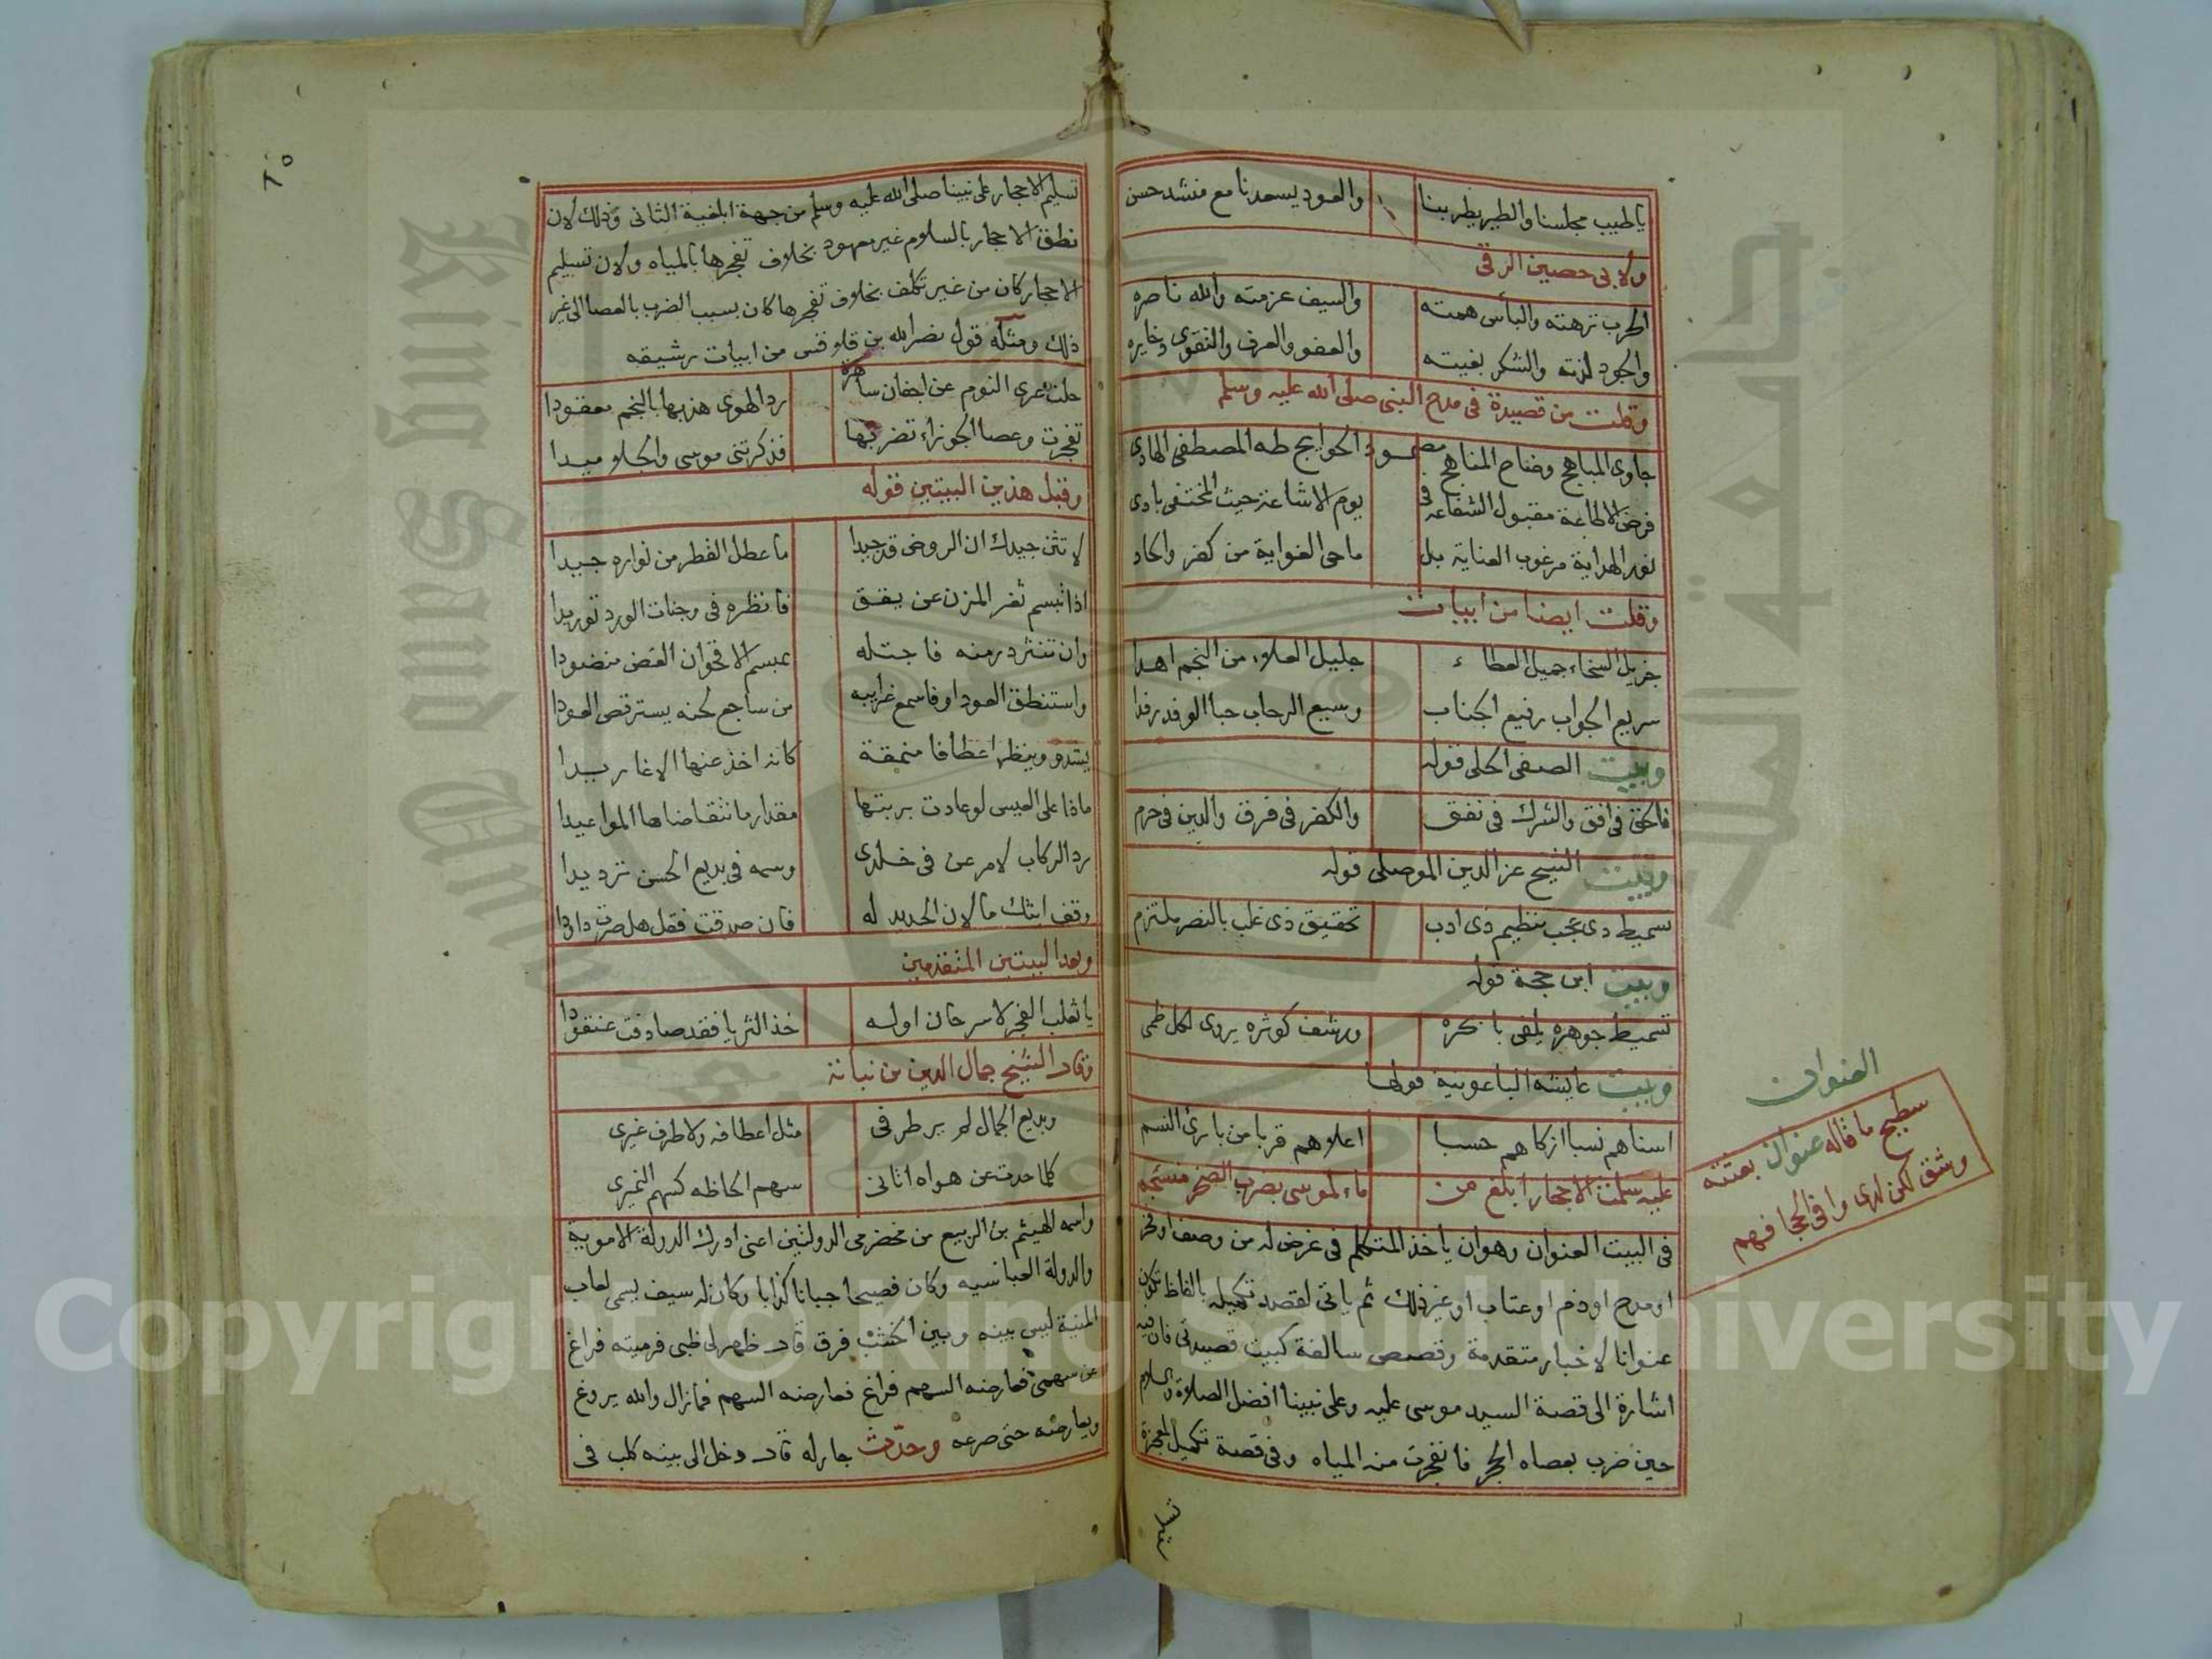 يا طيب مجلسنا والطير يطربنا والعود يسعدنا مع منشد حسن
ولابى حصين الرقى
الحرب نزهته والبأس همته والسيف عزمته والله ناصره
والجود لذته والشكر بغيته والعفو والعرف والتقوى ذخايره
وقلت من قصيدة فى مدح النبى صلى الله عليه وسلم
حاوى المباهج وضاح المناهج مقصود الحوايج طه المصطفى الهادى
فرض الاطاعة مقبول الشفاعة فى يوم الاشاعة حيث المختفى بادى
نور الهداية مرغوب العناية بل ماحى الغواية من كفر والحاد
وقلت ايضا من ابيات
جزيل السخاء جميل العطاء جليل العلاء من النجم اهدا
سريع الجواب رفيع الجناب وسيع الرحاب حبا الوفد رفدا
وبيت الصفى الحلى قوله
فالحق فى افق والشرك فى نفق والكفر فى فرق والدين فى حرم
وبيت الشيخ عز الدين الموصلى قوله
تسميط ذى عجب بنظيم ذى ادب تحقيق ذى غلب بالنصر ملتزم
وبيت ابن حجة قوله
تسميط جوهره يلقى بابحره ورشف كوثره يروى لكل ظمى
وبيت عايشه الباعونية قولها
اسناهم نسبا ازكاهم حسبا اعلاهم قربا من بارئ النسم
عليه سلمت الاحجار ابلغ من ماء لموسى بضرب الصخر منسجم
فى البيت العنوان وهو ان ياخذ المتكلم فى غرض له من وصف او فخر
او مدح او ذم او عتاب او غير ذلك ثم ياتى لقصد تكميله بالفاظ تكون
عنوانا لاخبار متقدمة وقصص سالفة كبيت قصيدتى فان فيه
اشارة الى قصة السيد موسى عليه وعلى نبينا افضل الصلاة والسلام
حين ضرب بعصاه الحجر فانفجرت منه المياه وفى قصة تكميل لمعجزة
العنوان
سطيح ما قاله عنوان بعثته
وشق لكن لدى وافى الحجا فهم
تسليم الاحجار على نبينا صلى الله عليه وسلم من جهة ابلغية الثانى وذلك لان
نطق الاحجار بالسلام غير معهود بخلاف تفجرها بالمياه ولان تسليم
الاحجار كان من غير تكلف بخلاف تفجرها كان بسبب الضرب بالعصا الى غير
ذلك ومثله قول نصر الله بن قلاقس من ابيات رشيقه
حلت عرى النوم عن اجفان ساهرة رد الهوى هدبها بالنجم معقودا
تفجرت وعصا الجوزاء تضربها فذكرتنى موسى والجلاميدا
وقبل هذين البيتين قوله
لا تثن جيدك ان الروض قد جيدا ما عطل القطر من نواره جيدا
اذا تبسم ثغر المزن عن يقق فانظره فى وجنات الورد توريدا
وان تنثر درمنه فاجتله بمبسم الاقحوان الغض منضودا
واستنطق العود او فاسمع غرايبه من ساجع لحنه يسترقص العودا
يشدو وينظر اعطافا منمقة كانه اخذ عنها الاغاريدا
ماذا على العيس لو عادت بربتها مقدار ما نتقاضاها المواعيدا
رد الركاب لامر عن فى خلدى وسمه فى بديع الحسن ترديدا
وقف ابثك ما لان الحديد له فان صدقت فقل هل صرت داودا
وبعد البيتين المتقدمين
يا ثعلب الفجر لا سرحان اوله خذ الثريا فقد صادفت عنقودا
وقال الشيخ جمال الدين بن نباتة
وبديع الجمال لم ير طرفى مثل اعطافه ولا طرف غيرى
كلما حدت عن هواه اتانى سهم الحاظه كسهم النميرى
واسمه الهيثم بن الربيع من مخضرمى الدولتين اعنى ادرك الدولة الاموية
والدولة العباسيه وكان فصيحا جبانا كذابا وكان له سيف يسمى لعاب
المنية ليس بينه وبين الخشب فرق قال ظهر لى ظبى فرميته فراغ
عن سهمى فعارضه السهم فراغ فعارضه السهم فما زال والله يروغ
ويعارضه حتى صرعه وحدث جار له قال دخل الى بيته كلب فى
Copyright © King Saud University